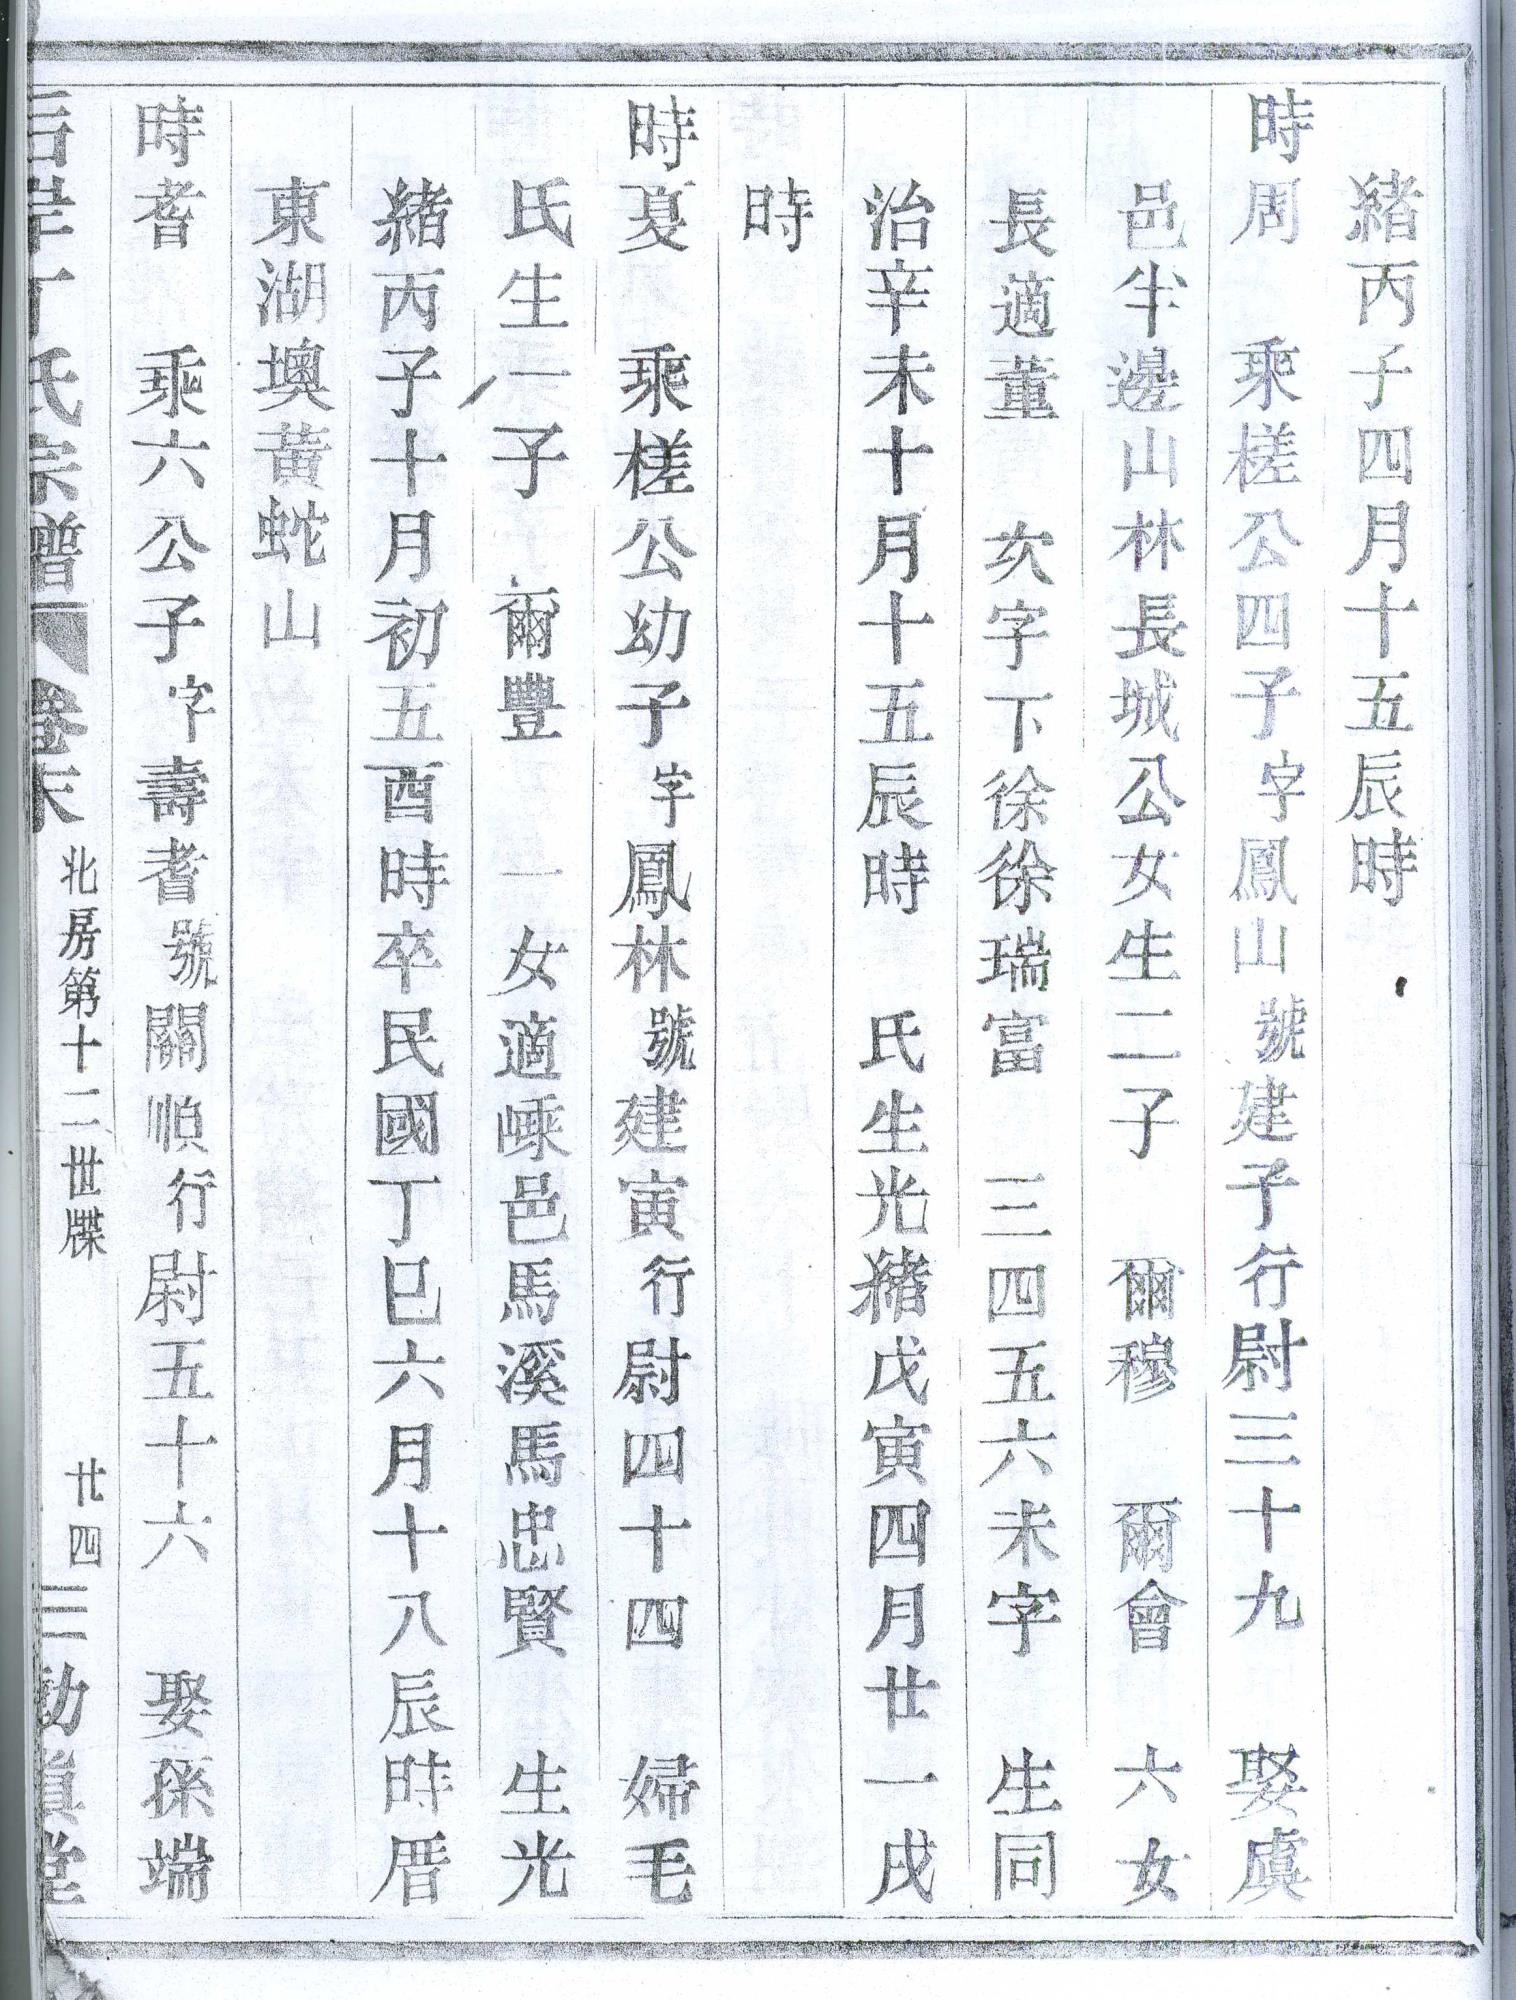 緒丙子四月十五辰時
時周 乘槎公四子字鳳山號建子行尉三十九 娶虞
邑半邊山林長城公女生二子 爾穆 爾會 六女
長適董 次字下徐徐瑞富 三四五六未字 生同
治辛未十月十五辰時 氏生光緒戊寅四月廿一戌
時
時夏 乘槎公幼子字鳳林號建寅行尉四十四 婦毛
氏生一子 爾豐 一女適嵊邑馬溪馬忠賢 生光
緒丙子十月初五酉時卒民國丁巳六月十八辰時厝
東湖墺黃蛇山
時耆 乘六公子字壽耆號關順行尉五十六 娶孫端
氏宗譜 卷末 北房第十二世牒 廿四 堂